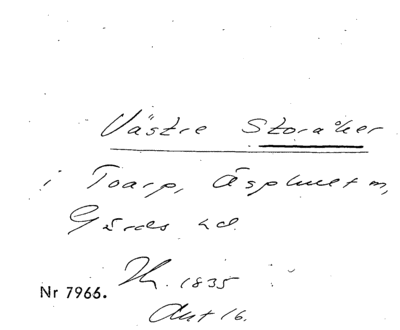 Västre Storåker
i Toarp, Äsphult m,
Gärds hd.
Nr 7966.
1835
Akt 16.